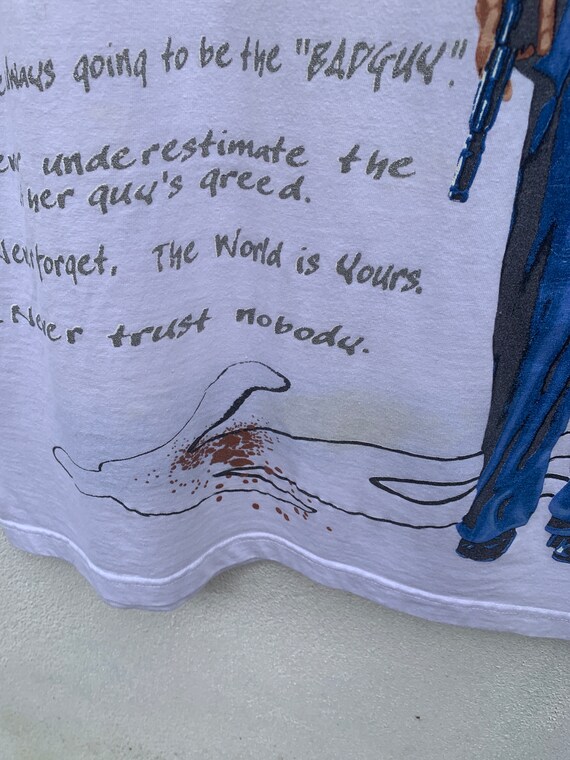 always going to be the "BADGUY."
underestimate the
her guy's greed.
Never forget. The World is Yours.
Never trust nobody.